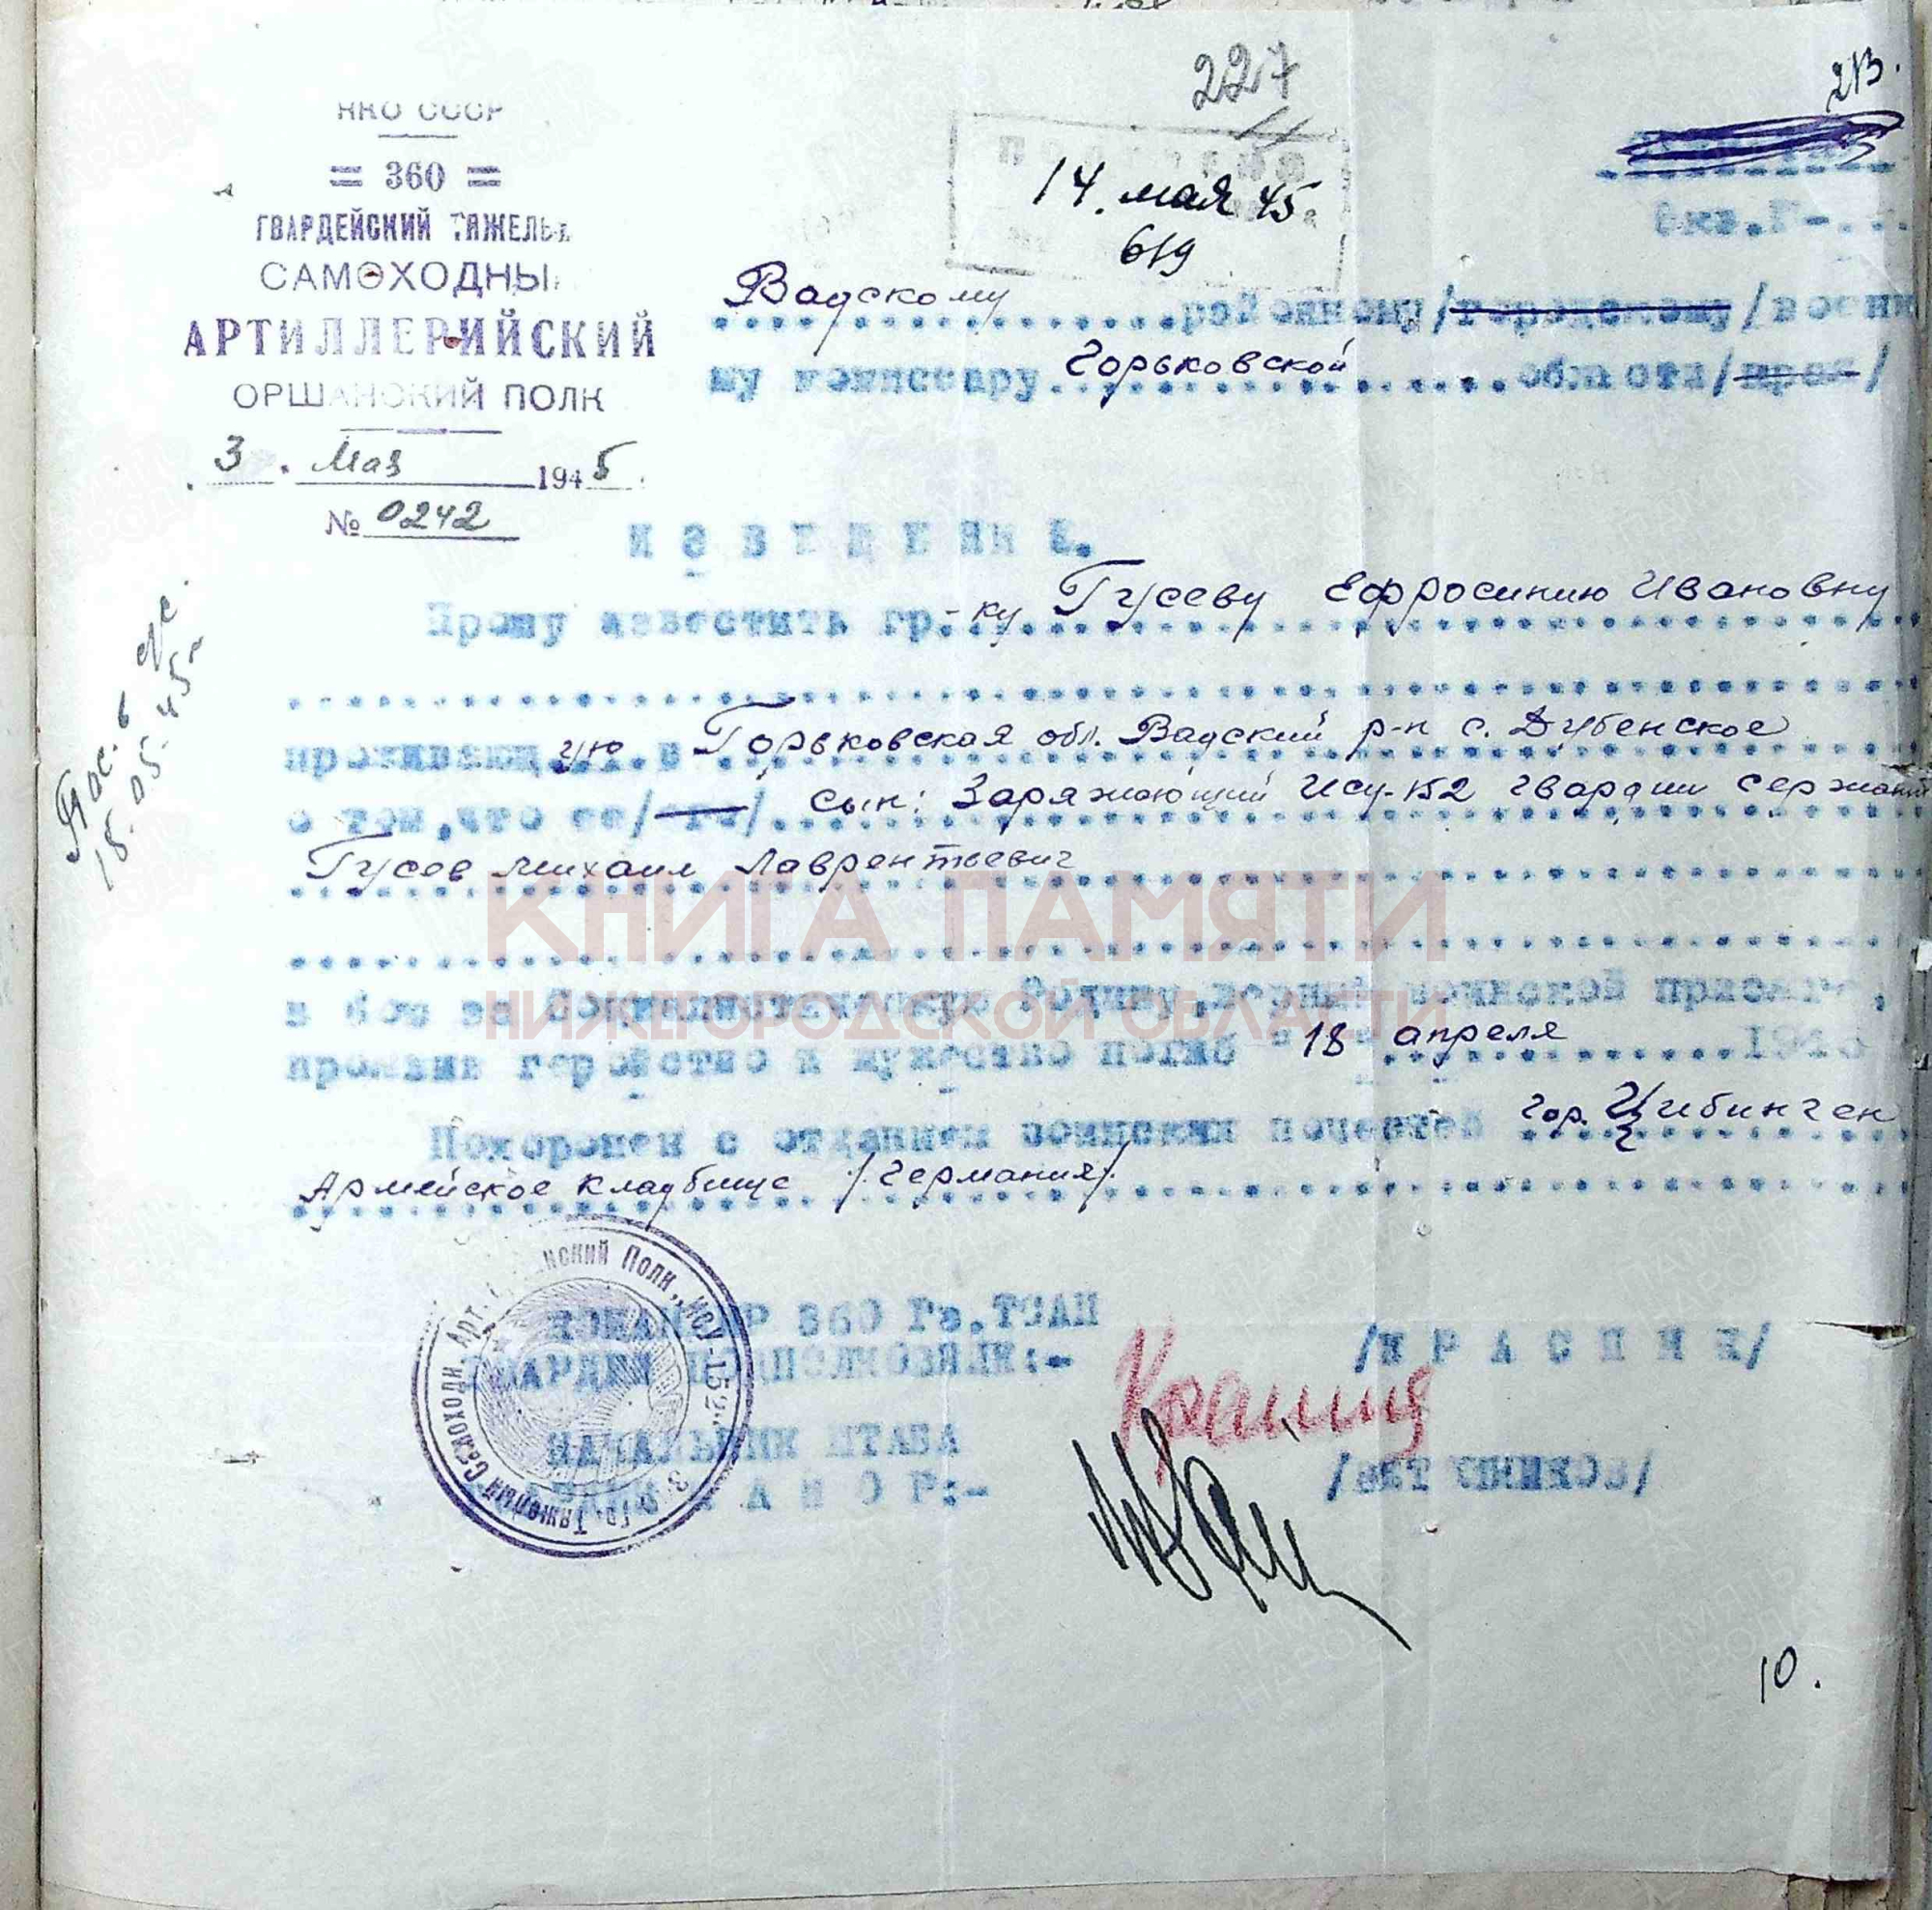 227
213.
НКО СССР
= 360 =
ГВАРДЕЙСКИЙ ТЯЖЕЛЫ
САМОХОДНЫ
АРТИЛЛЕРИЙСКИЙ
ОРШАНСКИЙ ПОЛК
3. Мая 1945
№ 0242
14. мая 45
619
Экз. №-...
Вадскому районному/городскому/военно
му комиссару Горьковской области/края/
ИЗВЕЩЕНИЕ.
Прошу известить гр.-ку Гусеву Ефросинию Ивановну
проживающ.ую в Горьковская обл. Вадский р-н с. Дубенское
о том, что ее/его/ сын: Заряжающий ИСУ-152 гвардии сержант
Гусев Михаил Лаврентьевич
в бою за Социалистическую Родину, верный воинской присяге,
проявив геройство и мужество погиб "18" апреля 1945
Похоронен с отданием воинских почестей гор. Цибинген
Армейское кладбище /Германия/
КОМАНДИР 360 Гв.ТСАП
ГВАРДИИ ПОДПОЛКОВНИК:-
/КРАСНИК/
НАЧАЛЬНИК ШТАБА
ГВАРДИИ МАЙОР:-
Гв. Тяжелый Самоходн. Арт. Оршанский Полк „ИСУ-152"
15.05.45
10.
КНИГА ПАМЯТИ
НИЖЕГОРОДСКОЙ ОБЛАСТИ
ПАМЯТЬ НАРОДА